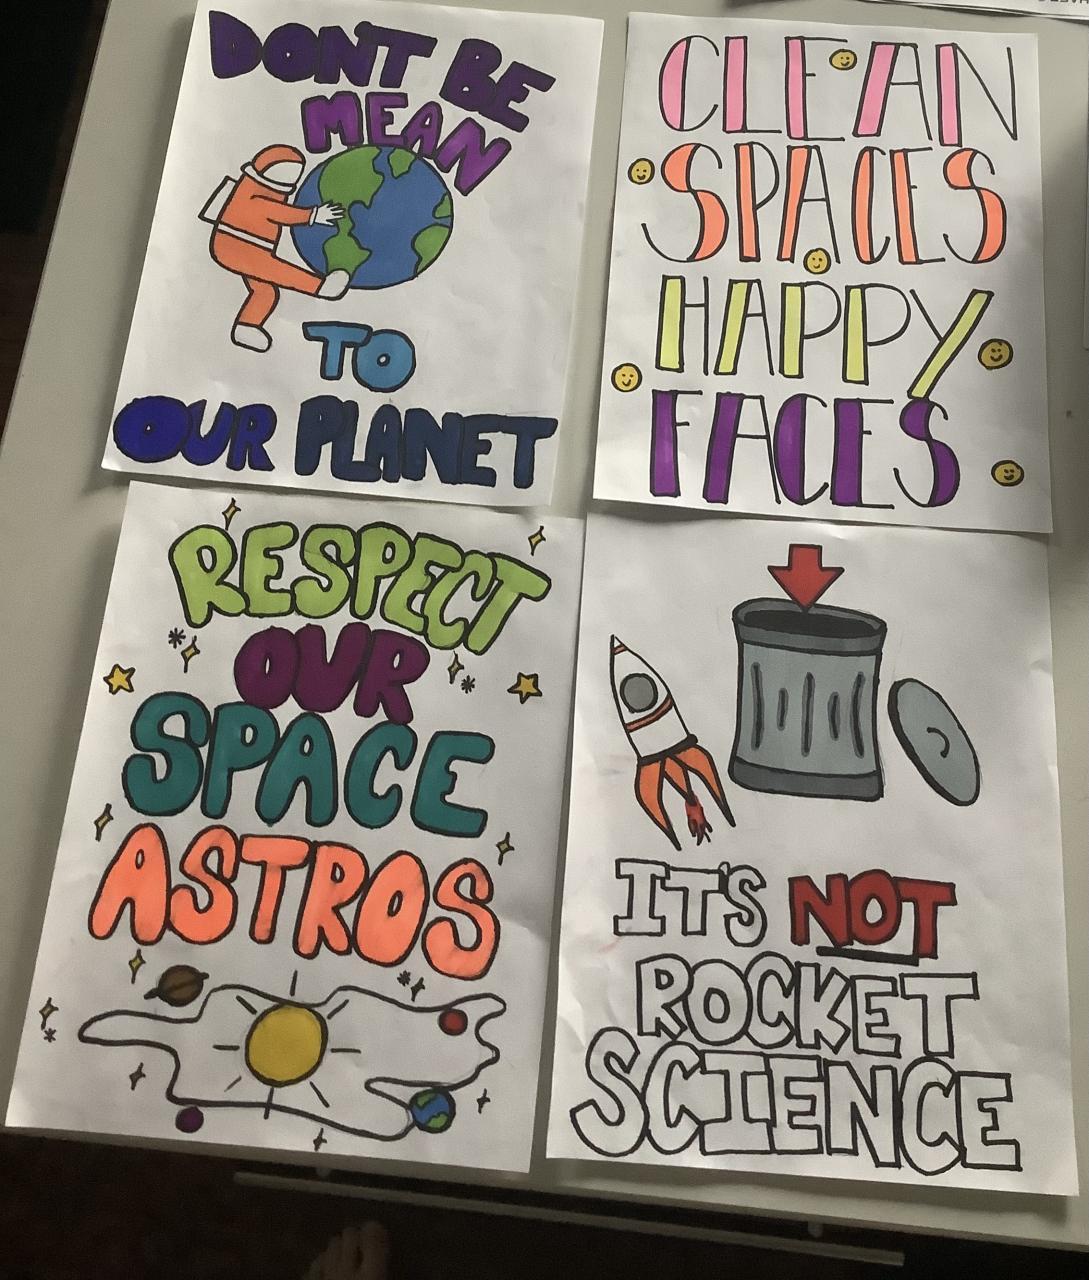 DON'T BE
MEAN
TO
OUR PLANET
CLEAN
SPACES
HAPPY
FACES
RESPECT
OUR
SPACE
ASTROS
IT'S NOT
ROCKET
SCIENCE